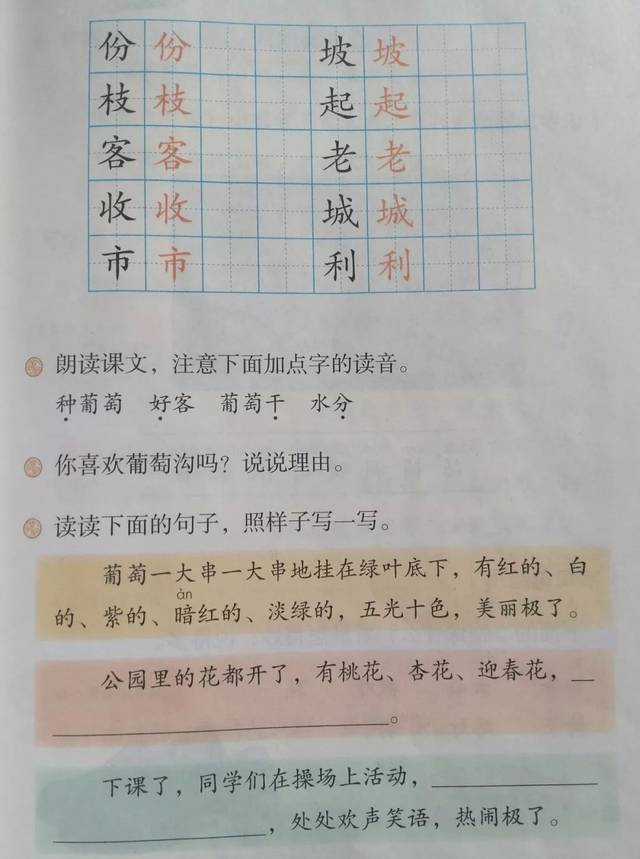 份 份 坡 坡
枝 枝 起 起
客 客 老 老
收 收 城 城
市 市 利 利
朗读课文，注意下面加点字的读音。
种葡萄 好客 葡萄干 水分
你喜欢葡萄沟吗？说说理由。
读读下面的句子，照样子写一写。
葡萄一大串一大串地挂在绿叶底下，有红的、白
àn
的、紫的、暗红的、淡绿的，五光十色，美丽极了。
公园里的花都开了，有桃花、杏花、迎春花，__
____________________。
下课了，同学们在操场上活动，__________
____________，处处欢声笑语，热闹极了。